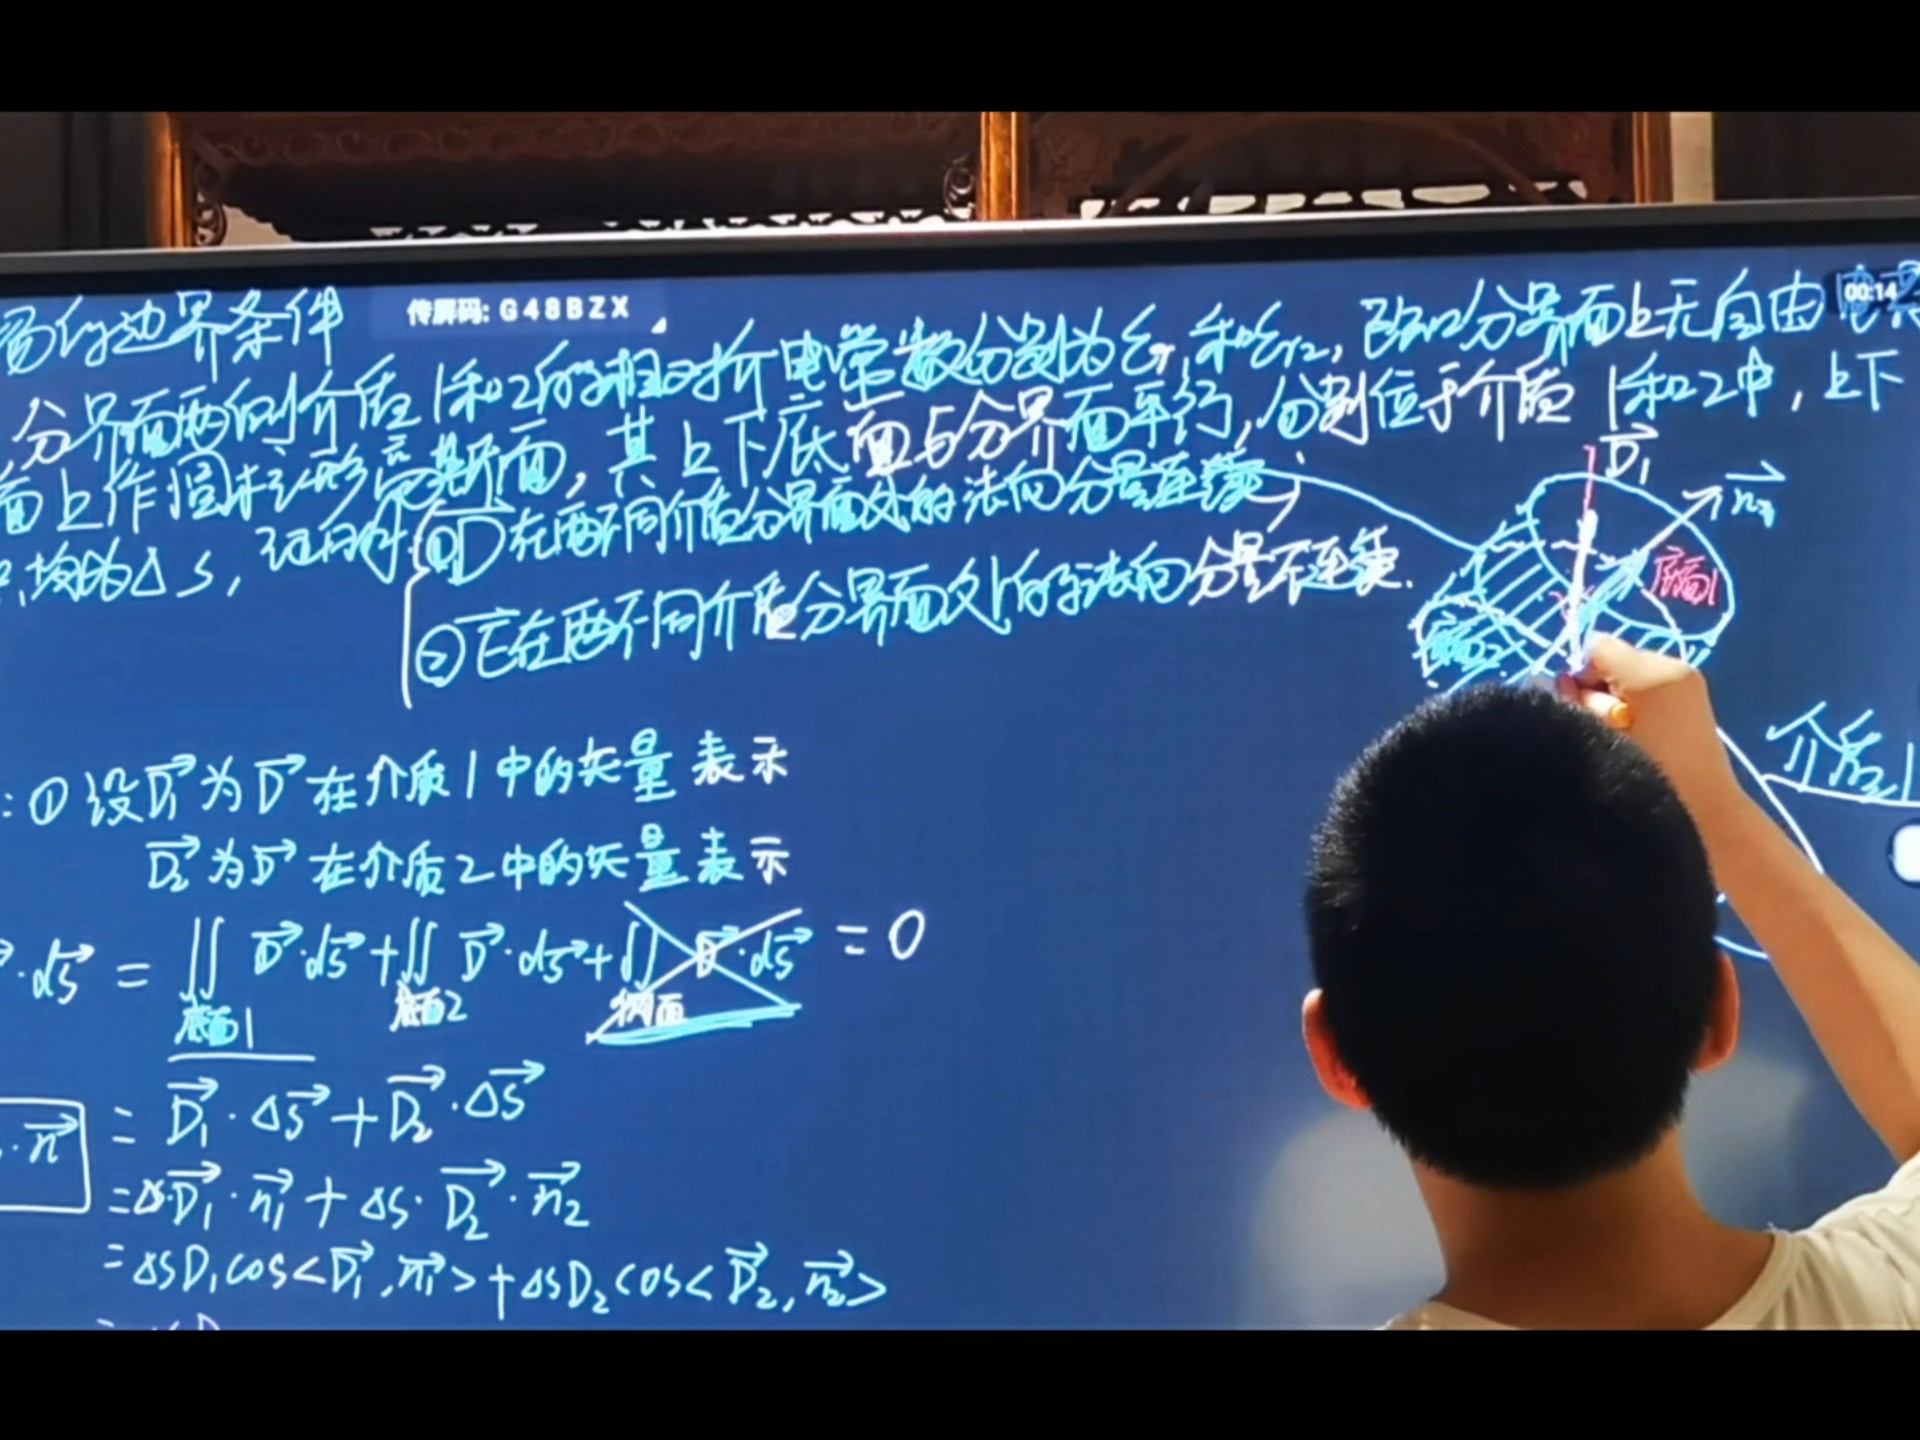 传屏码: G48BZX
00:14
的边界条件
分界面两侧介质1和2的相对介电常数分别为εr1和εr2, 已知分界面上无自由电荷
面上作圆柱形高斯面, 其上下底面与分界面平行, 分别位于介质1和2中, 上下
均为ΔS, 证明: ①D⃗在两不同介质分界面处的法向分量连续
②E⃗在两不同介质分界面处的法向分量不连续.
D⃗₁
n⃗
底面1
底面2
介质1
: ①设D⃗₁为D⃗在介质1中的矢量表示
D⃗₂为D⃗在介质2中的矢量表示
·dS⃗ = ∬底面1 D⃗·dS⃗ + ∬底面2 D⃗·dS⃗ + ∬侧面 D⃗·dS⃗ = 0
= D⃗₁·ΔS⃗ + D⃗₂·ΔS⃗
·n⃗
= ΔS·D⃗₁·n⃗₁ + ΔS·D⃗₂·n⃗₂
= ΔSD₁cos<D⃗₁,n⃗₁> + ΔSD₂cos<D⃗₂,n⃗₂>